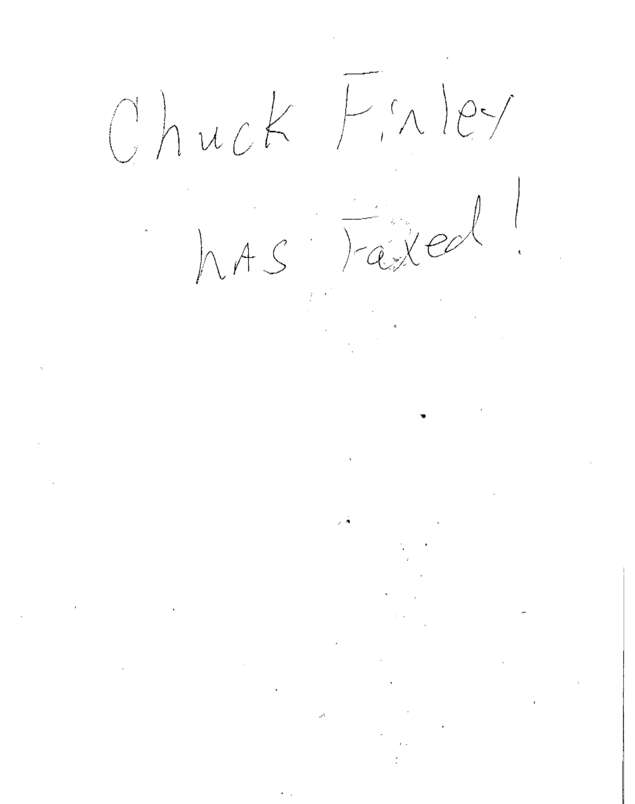 Chuck Finley
hAS Faxed!